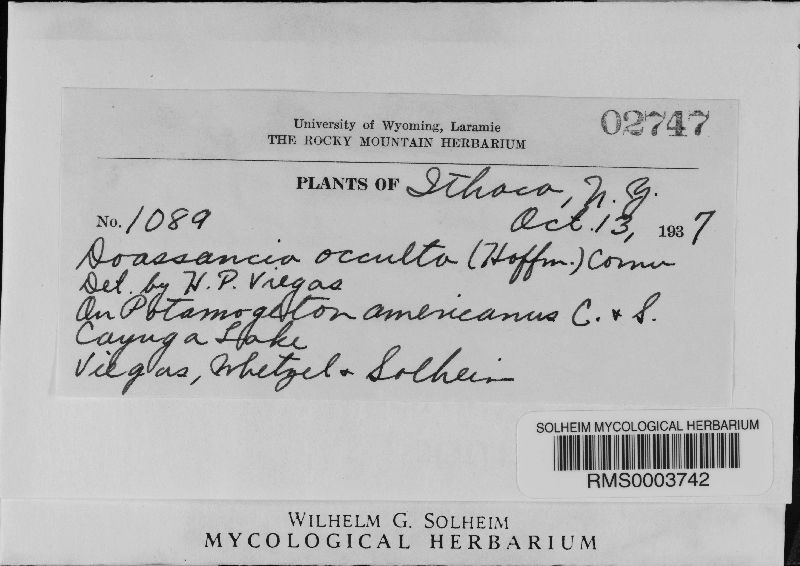 University of Wyoming, Laramie
THE ROCKY MOUNTAIN HERBARIUM
02747
PLANTS OF Ithaca, N. Y.
No. 1089 Oct. 13, 1937
Doassansia occulta (Hoffm.) Cornu
Det. by H. P. Viegas
On Potamogeton americanus C. & S.
Cayuga Lake
Viegas, Whetzel & Solheim
SOLHEIM MYCOLOGICAL HERBARIUM
RMS0003742
WILHELM G. SOLHEIM
MYCOLOGICAL HERBARIUM